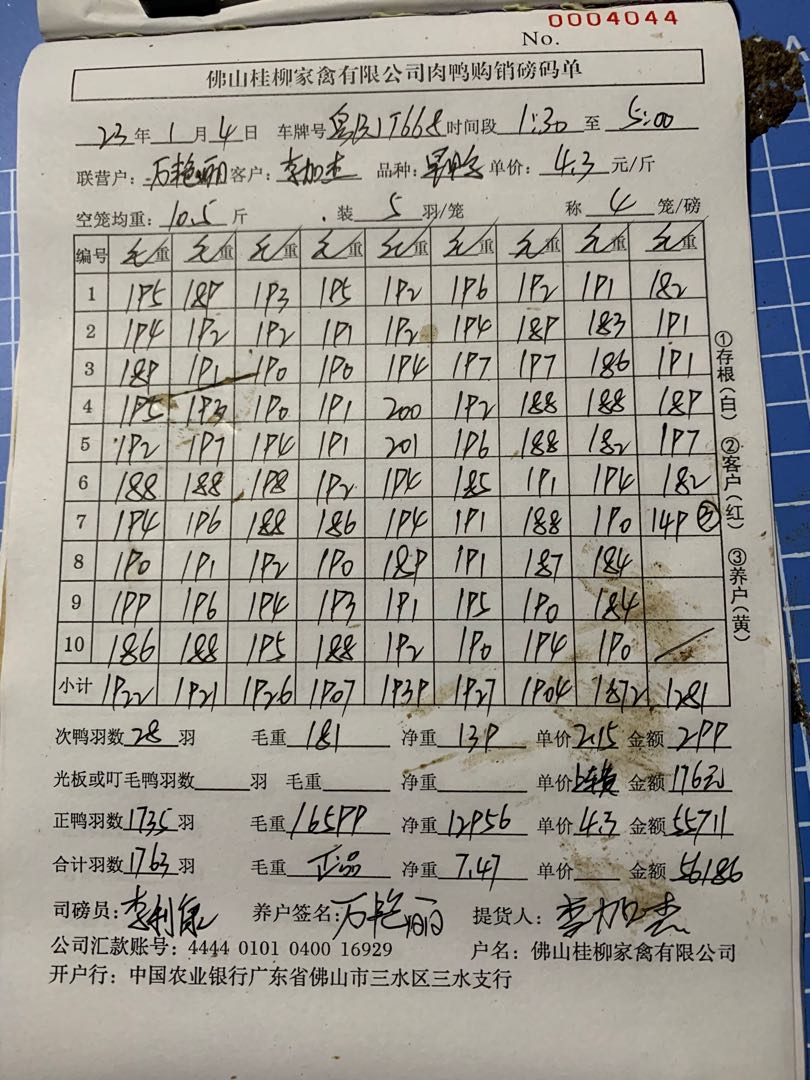 No. 0004044
佛山桂柳家禽有限公司肉鸭购销磅码单
23年1月4日 车牌号 时间段 1:30 至 5:00
联营户：万艳丽 客户：李加杰 品种： 单价：4.3 元/斤
空笼均重：10.5 斤 装 5 羽/笼 称 4 笼/磅
编号 毛重 毛重 毛重 毛重 毛重 毛重 毛重 毛重 毛重
1 195 189 193 195 192 196 192 191 182
2 194 192 192 191 192 194 189 183 191
3 189 191 190 190 194 197 197 186 191
4 195 193 190 191 200 192 188 188 189
5 192 197 194 191 201 196 188 182 197
6 188 188 198 192 194 185 191 194 182
7 194 196 188 186 194 191 188 190 149
8 190 191 192 190 189 191 187 184
9 199 196 194 193 191 195 190 184
10 186 188 195 188 192 190 194 190
小计 1922 1921 1926 1907 1939 1927 1904 1872 1281
次鸭羽数 28 羽 毛重 181 净重 139 单价 2.15 金额 299
光板或叮毛鸭羽数 羽 毛重 净重 单价 金额 176元
正鸭羽数 1735 羽 毛重 16599 净重 12956 单价 4.3 金额 55711
合计羽数 1763 羽 毛重 正品 净重 7.47 单价 金额 56186
司磅员：李利康 养户签名：万艳丽 提货人：李加杰
公司汇款账号：4444 0101 0400 16929 户名：佛山桂柳家禽有限公司
开户行：中国农业银行广东省佛山市三水区三水支行
①存根(白) ②客户(红) ③养户(黄)